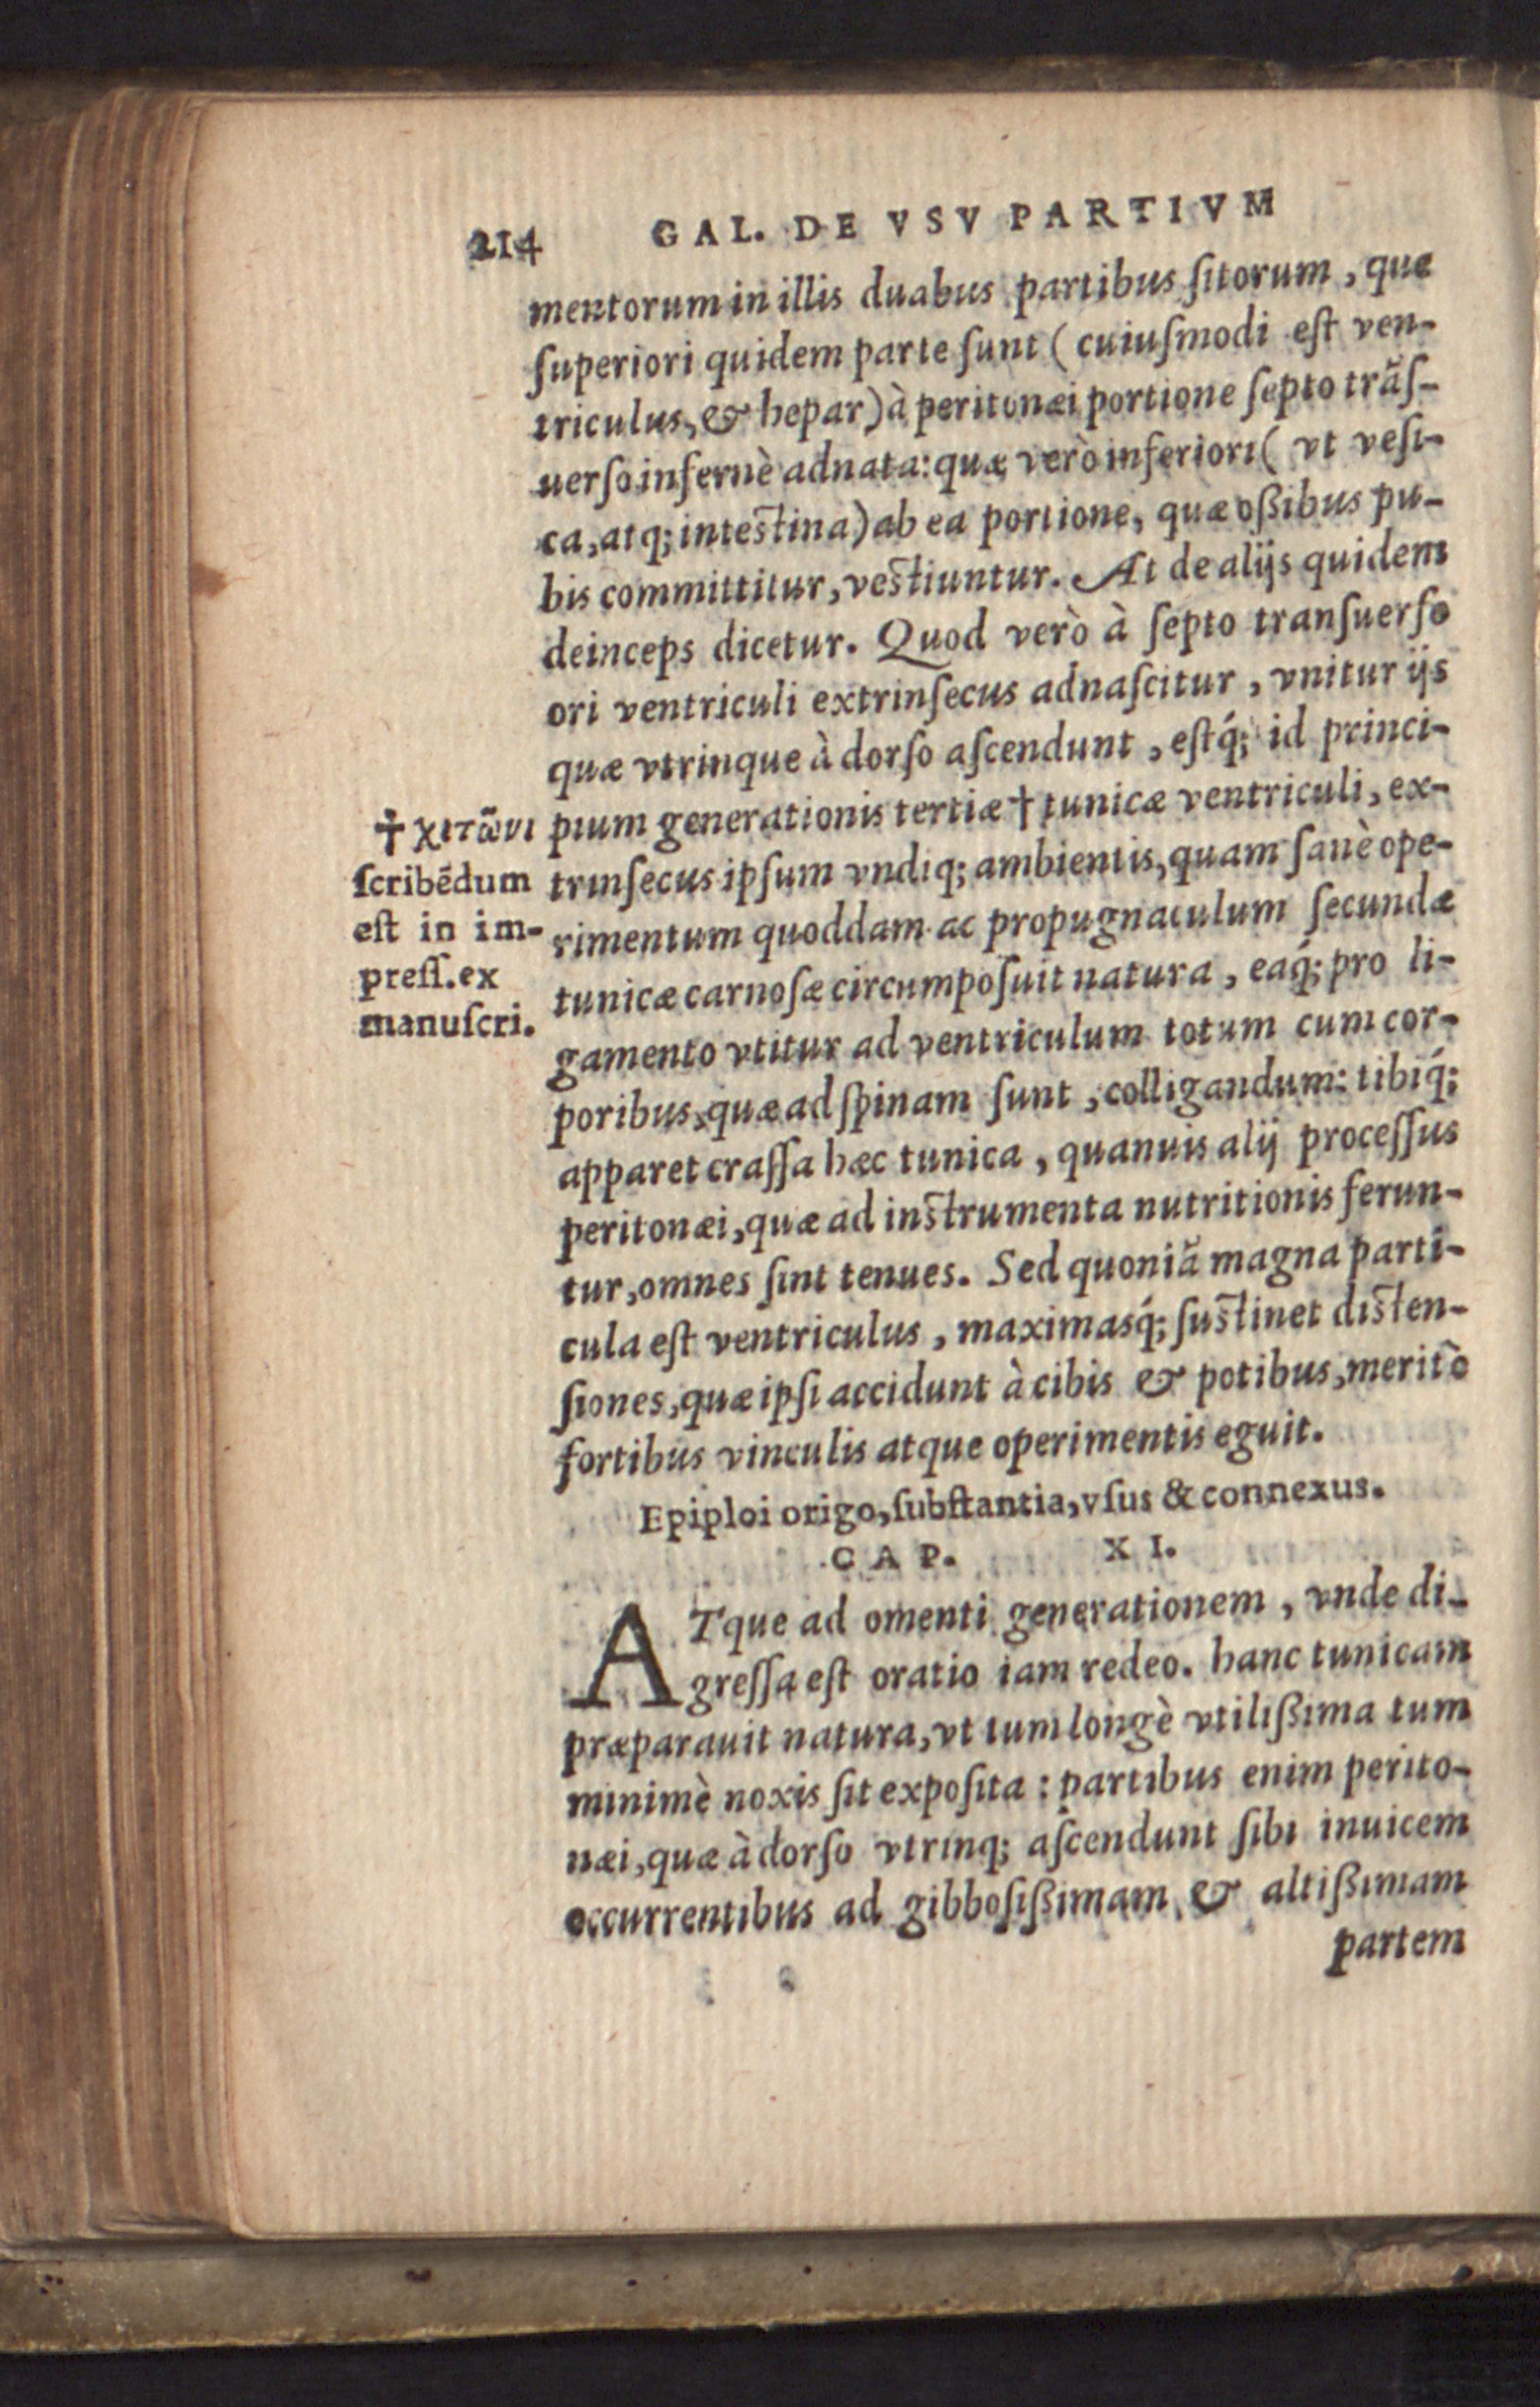 214 GAL. DE VSV PARTIVM
mentorum in illis duabus partibus ſitorum, quæ
ſuperiori quidem parte ſunt (cuiuſmodi eſt ven-
triculus, & hepar) à peritonæi portione ſepto trãſ-
uerſo infernè adnata: quæ verò inferiori (vt veſi-
ca, atq; inteſtina) ab ea portione, quæ oßibus pu-
bis committitur, veſtiuntur. At de alijs quidem
deinceps dicetur. Quod verò à ſepto tranſuerſo
ori ventriculi extrinſecus adnaſcitur, vnitur ijs
quæ vtrinque à dorſo aſcendunt, eſtq́; id princi-
pium generationis tertiæ † tunicæ ventriculi, ex-
trinſecus ipſum vndiq; ambientis, quam ſanè ope-
rimentum quoddam ac propugnaculum ſecundæ
tunicæ carnoſæ circumpoſuit natura, eaq́; pro li-
gamento vtitur ad ventriculum totum cum cor-
poribus, quæ ad ſpinam ſunt, colligandum: tibiq́;
apparet craſſa hæc tunica, quanuis alij proceſſus
peritonæi, quæ ad inſtrumenta nutritionis ferun-
tur, omnes ſint tenues. Sed quoniã magna parti-
cula eſt ventriculus, maximasq́; ſuſtinet diſten-
ſiones, quæ ipſi accidunt à cibis & potibus, meritò
fortibus vinculis atque operimentis eguit.
† χιτῶνι
ſcribẽdum
eſt in im-
preſſ. ex
manuſcri.
Epiploi origo, ſubſtantia, vſus & connexus.
CAP. XI.
ATque ad omenti generationem, vnde di-
greſſa eſt oratio iam redeo. hanc tunicam
præparauit natura, vt tum longè vtilißima tum
minimè noxis ſit expoſita: partibus enim perito-
næi, quæ à dorſo vtrinq; aſcendunt ſibi inuicem
occurrentibus ad gibboſißimam & altißimam
partem